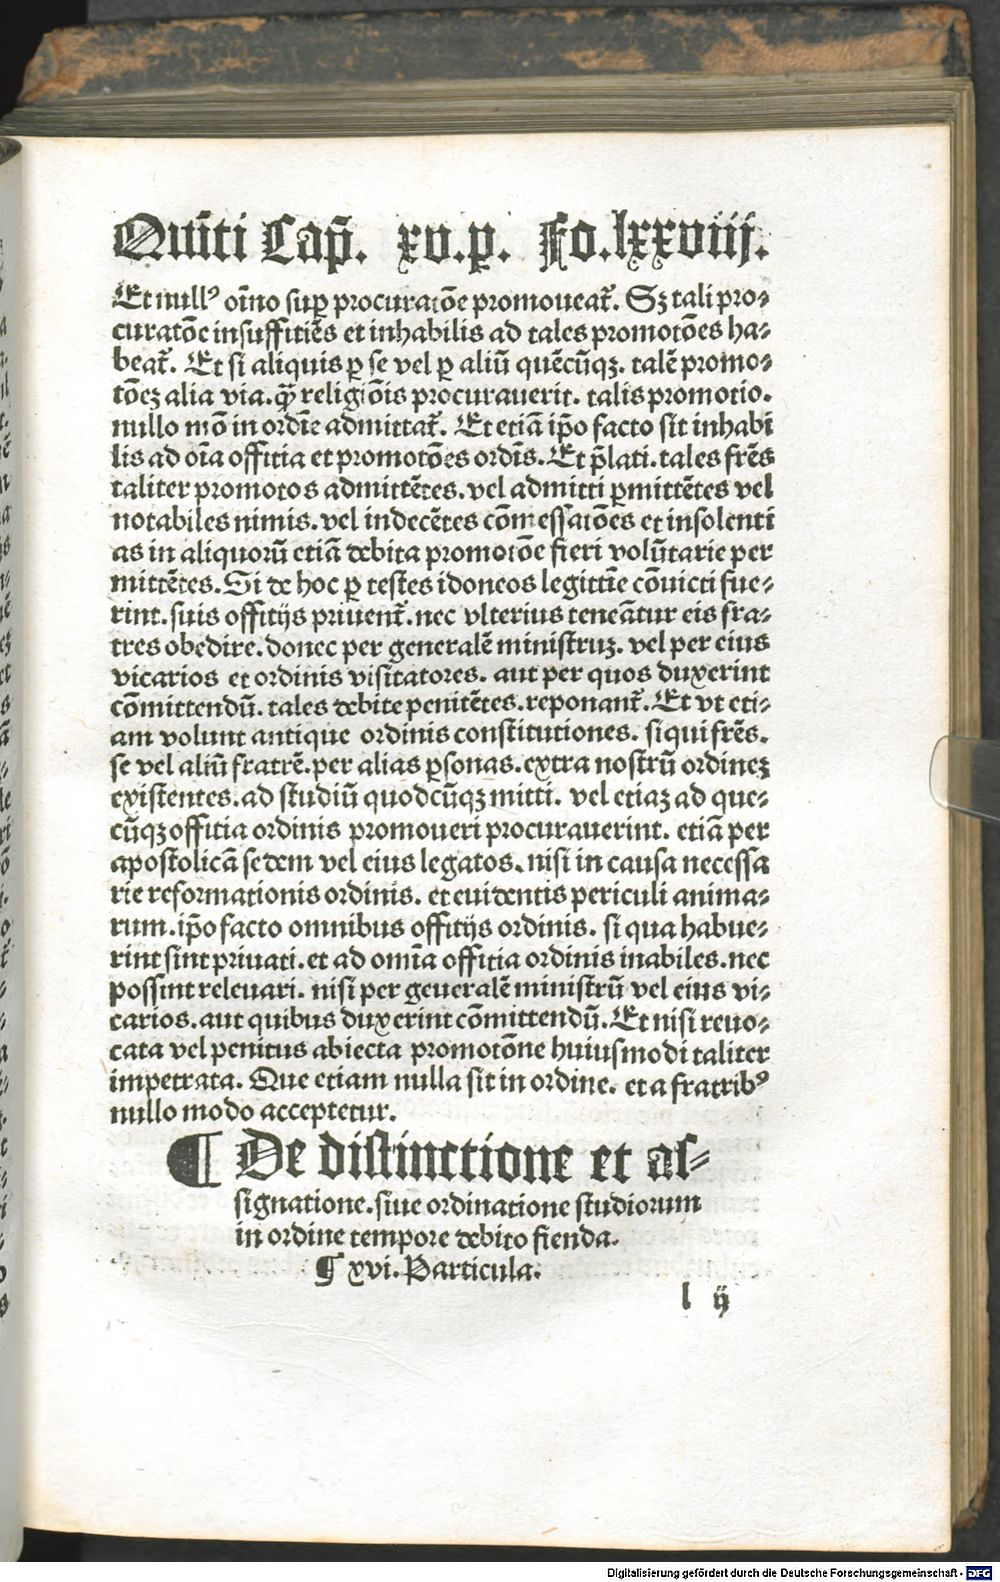 Quīti Cap̄. xv.p. Fo.lxxviij.
Et null⁹ oīno suꝑ procuratōe promoueat᷑. Sꝫ tali pro⸗
curatōe insuffitiēs et inhabilis ad tales promotōes ha⸗
beat᷑. Et si aliquis ꝑ se vel ꝑ aliū quēcūqꝫ. talē promo⸗
tōeꝫ alia via. qͣꝫ religiōis procurauerit. talis promotio.
nullo mō in ordīe admittat᷑. Et etiā ip̄o facto sit inhabi
lis ad oīa offitia et promotōes ordīs. Et p̄lati. tales frēs
taliter promotos admittētes. vel admitti ꝑmittētes vel
notabiles nimis. vel indecētes cōmessatōes et insolenti
as in aliquorū etiā debita promotōe fieri volūtarie per
mittētes. Si de hoc ꝑ testes idoneos legittīe cōuicti fue⸗
rint. suis offitijs priuent᷑. nec vlterius teneātur eis fra⸗
tres obedire. donec per generalē ministruꝫ. vel per eius
vicarios et ordinis visitatores. aut per quos duxerint
cōmittendū. tales debite penitētes. reponant᷑. Et vt eti⸗
am volunt antique ordinis constitutiones. si qui frēs.
se vel aliū fratrē. per alias ꝑsonas. extra nostrū ordineꝫ
existentes. ad studiū quodcūqꝫ mitti. vel etiaꝫ ad que⸗
cūqꝫ offitia ordinis promoueri procurauerint. etiā per
apostolicā sedem vel eius legatos. nisi in causa necessa
rie reformationis ordinis. et euidentis periculi anima⸗
rum. ip̄o facto omnibus offitijs ordinis. si qua habue⸗
rint sint priuati. et ad omīa offitia ordinis inabiles. nec
possint releuari. nisi per geueralē ministrū vel eius vi⸗
carios. aut quibus duxerint cōmittendū. Et nisi reuo⸗
cata vel penitus abiecta promotōne huiusmodi taliter
impetrata. Que etiam nulla sit in ordine. et a fratrib⁹
nullo modo acceptetur.
¶ De distinctione et as⸗
signatione. siue ordinatione studiorum
in ordine tempore debito fienda.
¶ xvi. Particula.
l ij
Digitalisierung gefördert durch die Deutsche Forschungsgemeinschaft - DFG